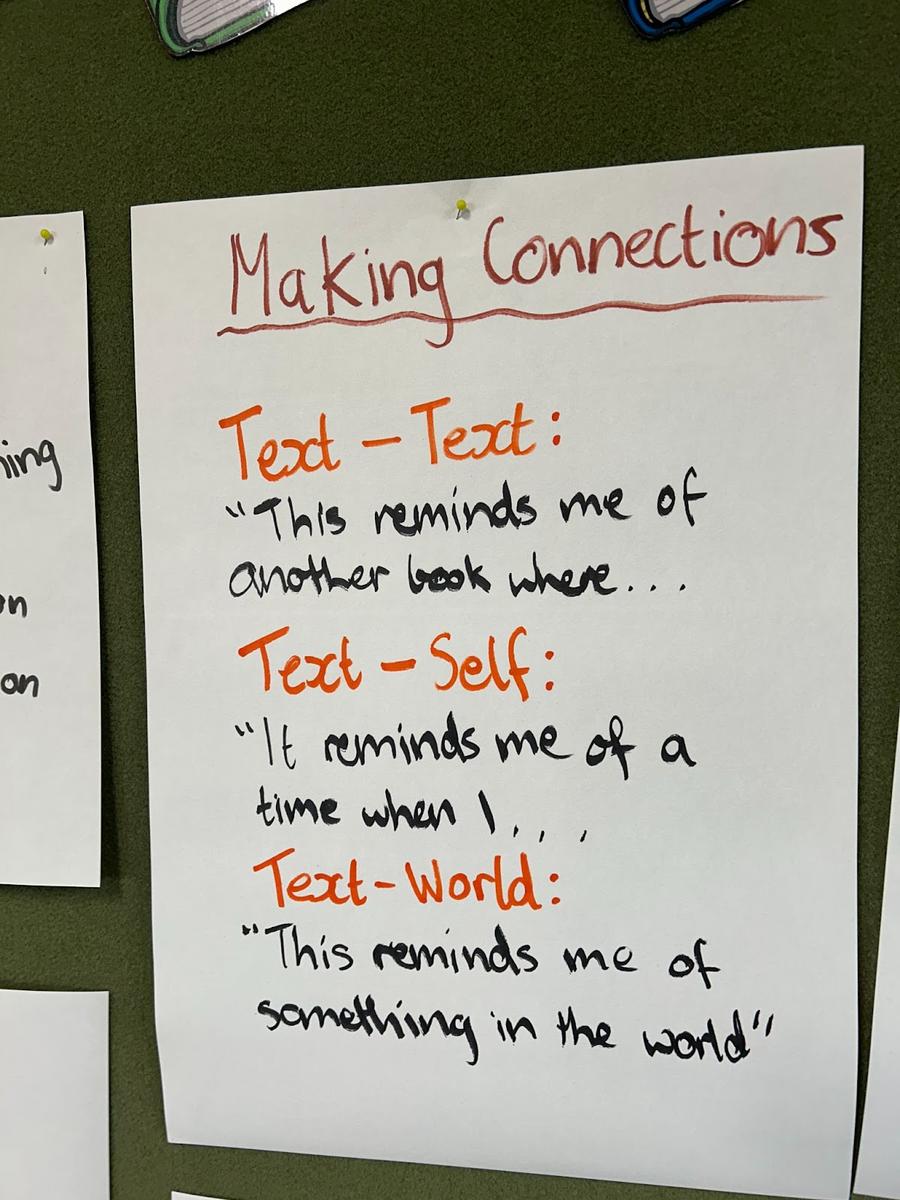 Making Connections
Text - Text:
"This reminds me of
another book where...
Text - Self:
"It reminds me of a
time when I...
Text-World:
"This reminds me of
something in the world"
on